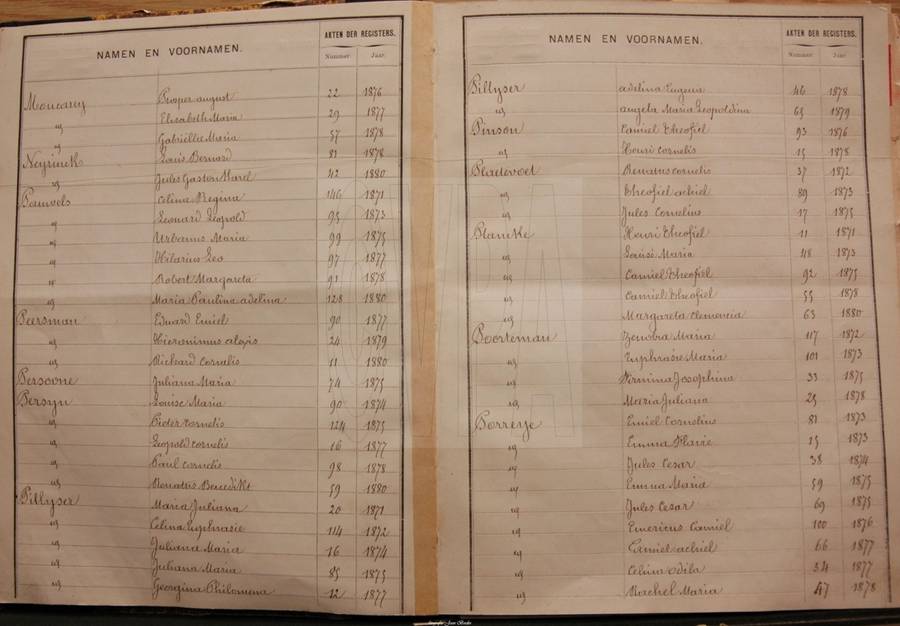 NAMEN EN VOORNAMEN. AKTEN DER REGISTERS.
Nummer Jaar
Moncarey Prosper august 22 1876
id Elisabeth Maria 29 1877
id Gabriëlle Maria 57 1878
Neyrinck Louis Bernard 81 1878
id Jules Gaston Karel 42 1880
Pauwels Celina Regina 146 1871
id Leonard Leopold 95 1873
id Urbanus Maria 99 1875
id Hilarius Leo 97 1877
id Robert Margareta 91 1878
id Maria Paulina adelina 128 1880
Peersman Eduard Emiel 90 1877
id Hieronimus aloijs 24 1879
id Richard Cornelis 11 1880
Persoone Juliana Maria 74 1875
Persyn Louise Maria 90 1874
id Pieter Cornelis 124 1875
id Leopold Cornelis 16 1877
id Paul Cornelis 98 1878
id Renatus Benedikt 59 1880
Pillyser Maria Juliana 20 1871
id Celina Euphrasie 114 1872
id Juliana Maria 16 1874
id Juliana Maria 85 1875
id Georgina Philomena 12 1877
NAMEN EN VOORNAMEN. AKTEN DER REGISTERS.
Nummer Jaar
Pillyser adelina Eugena 46 1878
id angela Maria Leopoldina 65 1879
Pinson Camiel Theofiel 93 1876
id Henri Cornelis 15 1878
Pladevoet Renatus Cornelis 37 1872
id Theofiel achiel 89 1873
id Jules Cornelius 17 1875
Plancke Henri Theofiel 11 1871
id Louise Maria 48 1873
id Camiel Theofiel 92 1875
id Camiel Theofiel 55 1878
id Margareta Clemencia 63 1880
Poorteman Zenobia Maria 117 1872
id Euphrasie Maria 101 1873
id Firmina Josephina 33 1875
id Maria Juliana 25 1878
Porreye Emiel Cornelius 81 1873
id Emma Flavie 15 1873
id Jules Cesar 38 1874
id Emma Maria 59 1875
id Jules Cesar 69 1875
id Emericus Camiel 100 1876
id Ermiel achiel 66 1877
id Celina Odila 34 1877
id Rachel Maria 47 1878